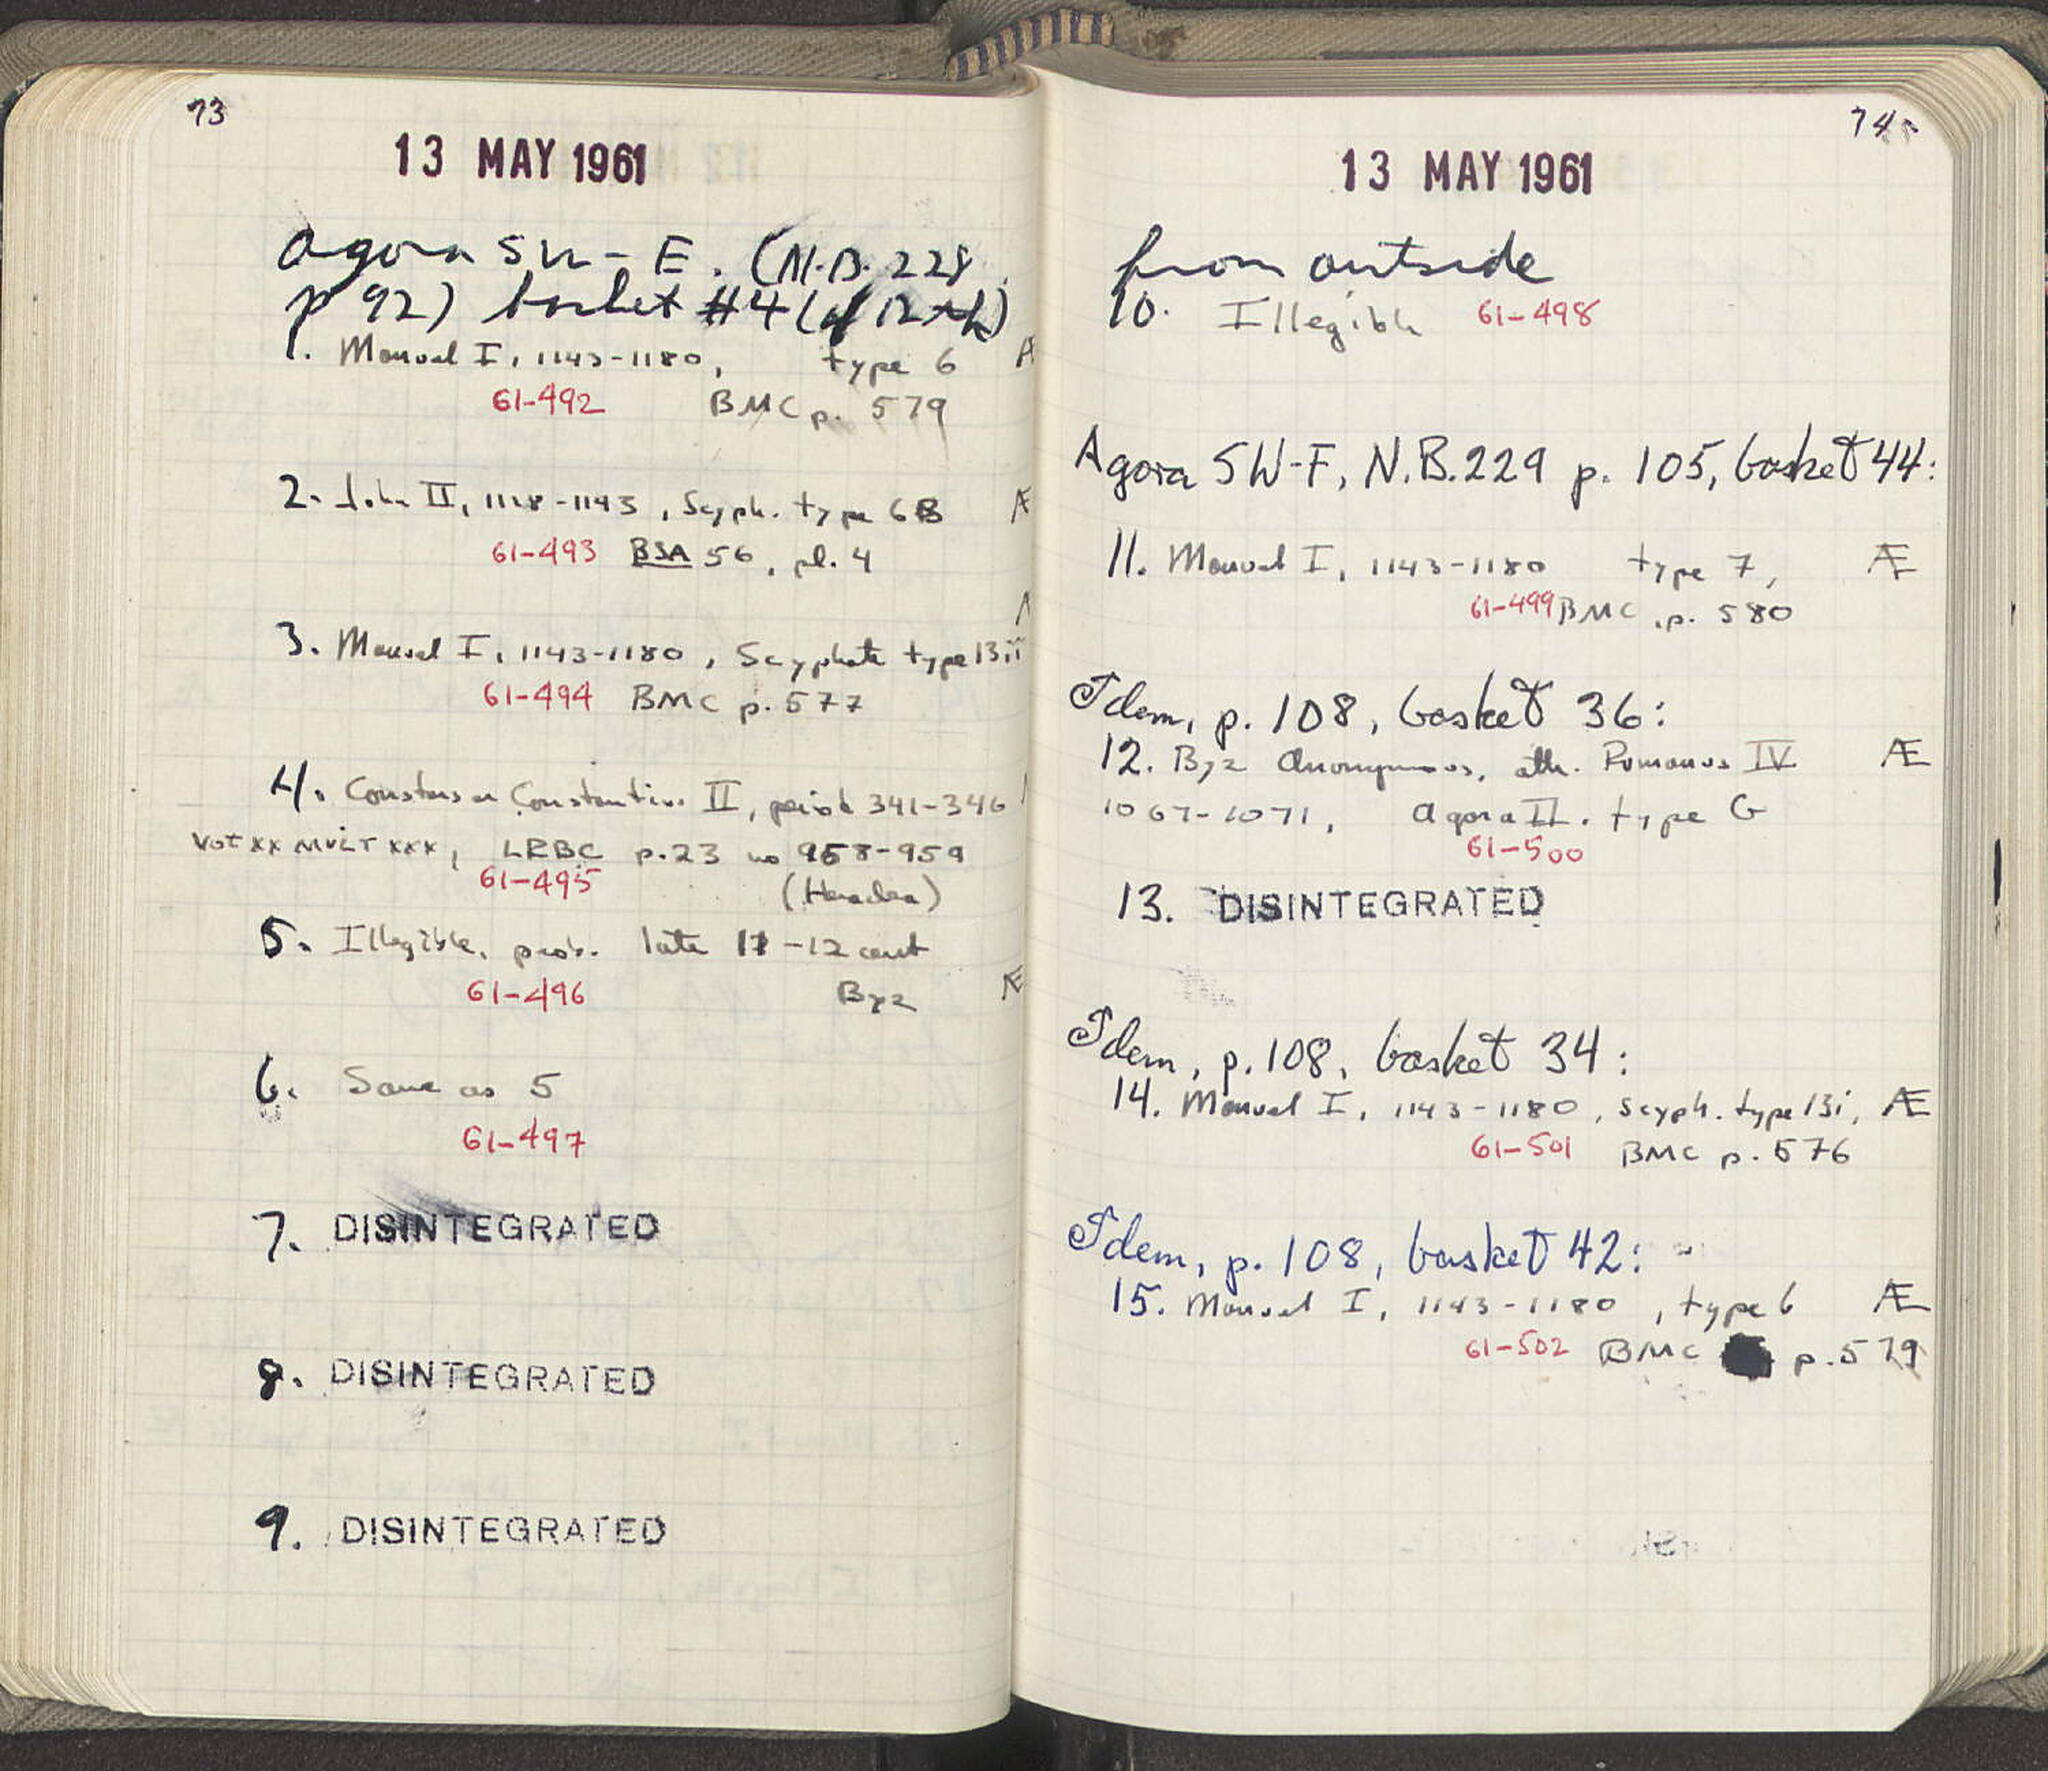 73
13 MAY 1961
Agora SW-E. (N.B. 228
p 92) basket #4 (of 12th)
1. Manuel I, 1143-1180, type 6 Æ
61-492 BMC p. 579
2. John II, 1118-1143, Scyph. type 6B Æ
61-493 BSA 56, pl. 4
3. Manuel I, 1143-1180, Scyphate type 13ii
61-494 BMC p. 577
4. Constans or Constantius II, period 341-346
VOT XX MVLT XXX, LRBC p. 23 no 958-959
61-495 (Heraclea)
5. Illegible, prob. late 11-12 cent
61-496 Byz Æ
6. Same as 5
61-497
7. DISINTEGRATED
8. DISINTEGRATED
9. DISINTEGRATED
74
13 MAY 1961
from outside
10. Illegible 61-498
Agora SW-F, N.B. 229 p. 105, basket 44:
11. Manuel I, 1143-1180 type 7, Æ
61-499 BMC, p. 580
Idem, p. 108, basket 36:
12. Byz Anonymous, attr. Romanus IV Æ
1067-1071, Agora II. type G
61-500
13. DISINTEGRATED
Idem, p. 108, basket 34:
14. Manuel I, 1143-1180, Scyph. type 13i, Æ
61-501 BMC p. 576
Idem, p. 108, basket 42:
15. Manuel I, 1143-1180, type 6 Æ
61-502 BMC p. 579